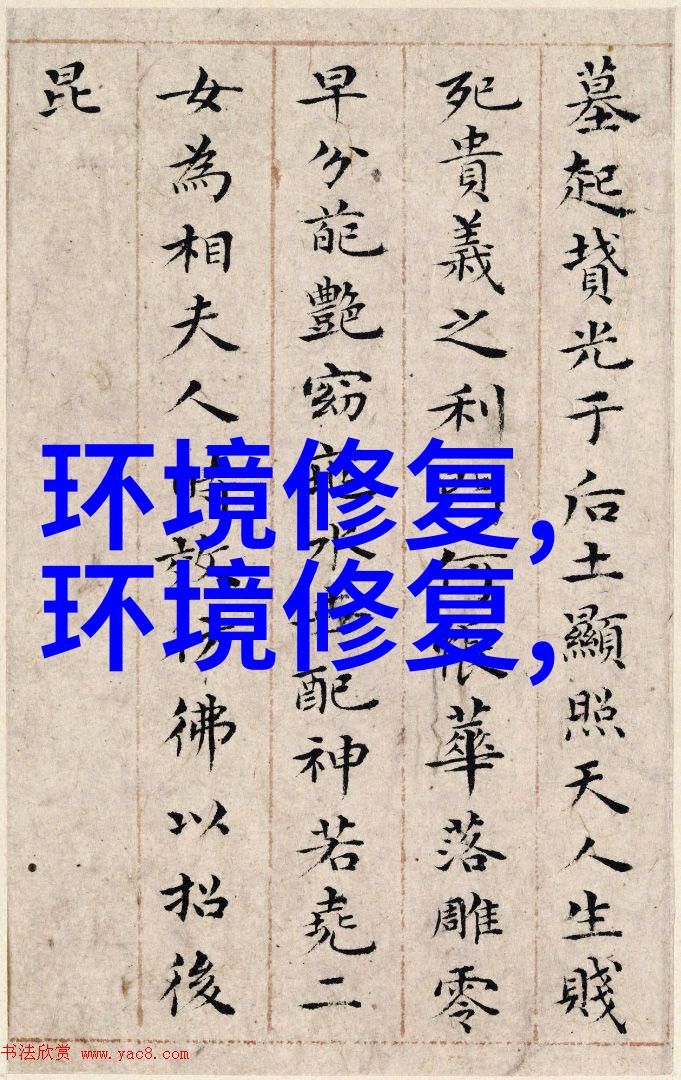 墓起墳光于后土顯照天人生賤
死貴義之利何華落雕零
早分葩艷窈配神若堯二
女為相夫人彿以招後
昆
环境修复,
环境修复,
书法欣赏 www.yac8.com